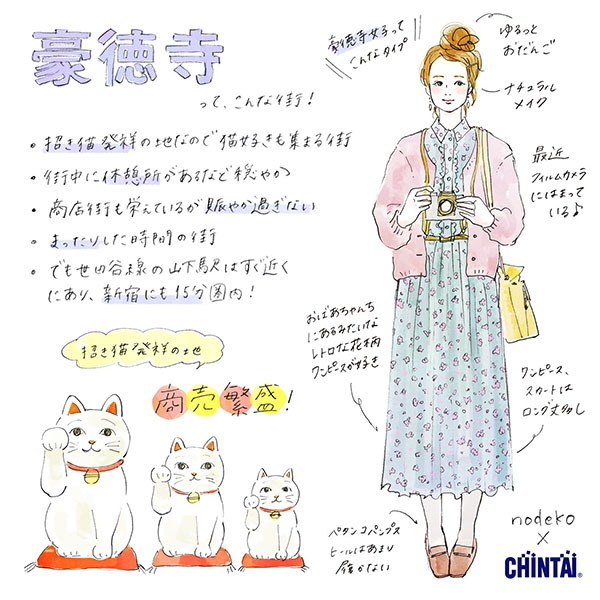 豪徳寺
って、こんな街!
• 招き猫発祥の地なので猫好きも集まる街
• 街中に休憩所があるなど穏やか
• 商店街も栄えているが賑やか過ぎない
• まったりした時間の街
• でも世田谷線の山下駅はすぐ近く
にあり、新宿にも15分圏内!
招き猫発祥の地
商売繁盛!
豪徳寺女子って
こんなタイプ
ゆるっと
おだんご
ナチュラル
メイク
最近
フィルムカメラ
にはまって
いる♪
おばあちゃんち
にあるみたいな
レトロな花柄
ワンピースが好き
ワンピース、
スカートは
ロング丈多め
ペタンコパンプス
ヒールはあまり
履かない
nodeko
×
CHINTAI®